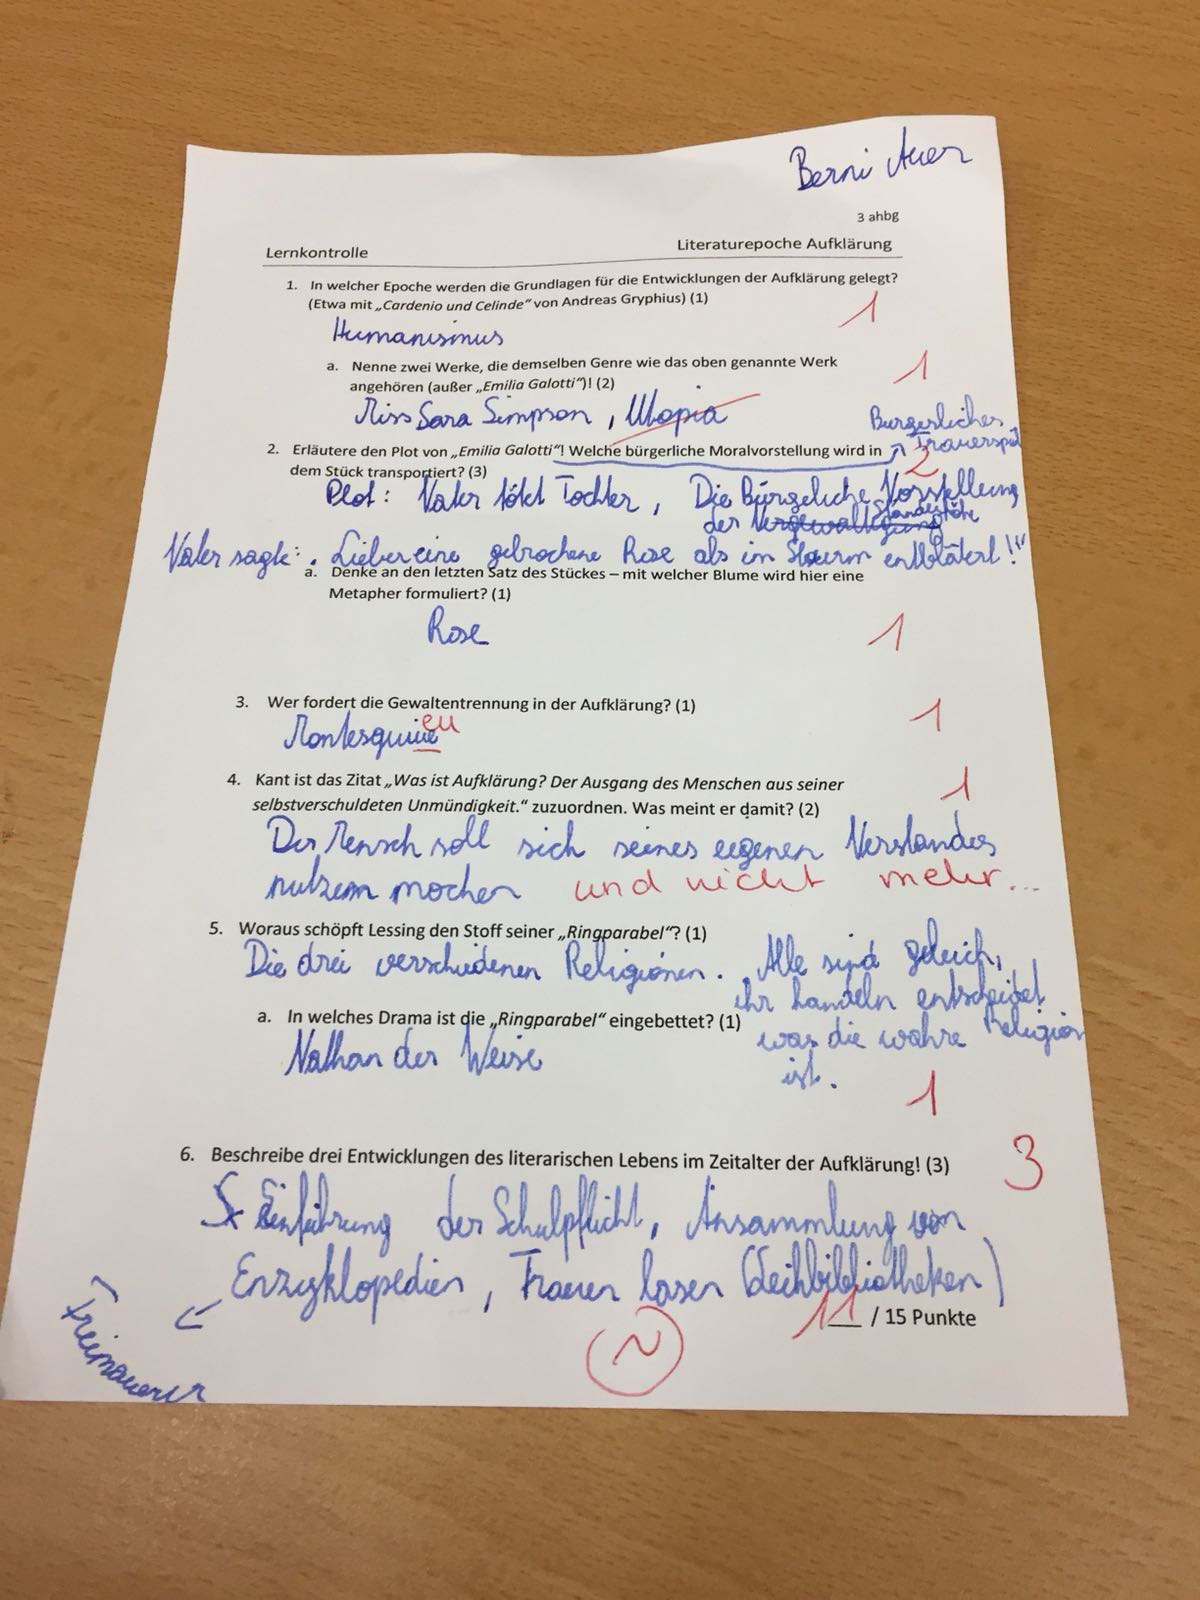 Berni Auer
3 ahbg
Lernkontrolle Literaturepoche Aufklärung
1. In welcher Epoche werden die Grundlagen für die Entwicklungen der Aufklärung gelegt?
(Etwa mit „Cardenio und Celinde“ von Andreas Gryphius) (1)
1
Humanismus
a. Nenne zwei Werke, die demselben Genre wie das oben genannte Werk
angehören (außer „Emilia Galotti“)! (2)
1
Miss Sara Simpson, Utopia
Bürgerliches
Trauerspiel
2. Erläutere den Plot von „Emilia Galotti“! Welche bürgerliche Moralvorstellung wird in
dem Stück transportiert? (3)
2
Plot: Vater tötet Tochter, Die Bürgerliche Vorstellung
der Vergewaltigung
Vater sagte: „Lieber eine gebrochene Rose als im Sturm entblätert!“
a. Denke an den letzten Satz des Stückes – mit welcher Blume wird hier eine
Metapher formuliert? (1)
Rose
1
3. Wer fordert die Gewaltentrennung in der Aufklärung? (1)
1
eu
4. Kant ist das Zitat „Was ist Aufklärung? Der Ausgang des Menschen aus seiner
selbstverschuldeten Unmündigkeit.“ zuzuordnen. Was meint er damit? (2)
1
Der Mensch soll sich seines eigenen Verstandes
machen und nicht mehr...
5. Woraus schöpft Lessing den Stoff seiner „Ringparabel“? (1)
Die drei verschiedenen Religionen. Alle sind geleich,
ihr handeln entscheidet
was die wahre Religion
ist.
a. In welches Drama ist die „Ringparabel“ eingebettet? (1)
Nathan der Weise
1
6. Beschreibe drei Entwicklungen des literarischen Lebens im Zeitalter der Aufklärung! (3)
3
Einführung der Schulpflicht, Ansammlung von
Enzyklopedien, Frauen lasen (Leihbibliotheken)
Freimaurer
11 / 15 Punkte